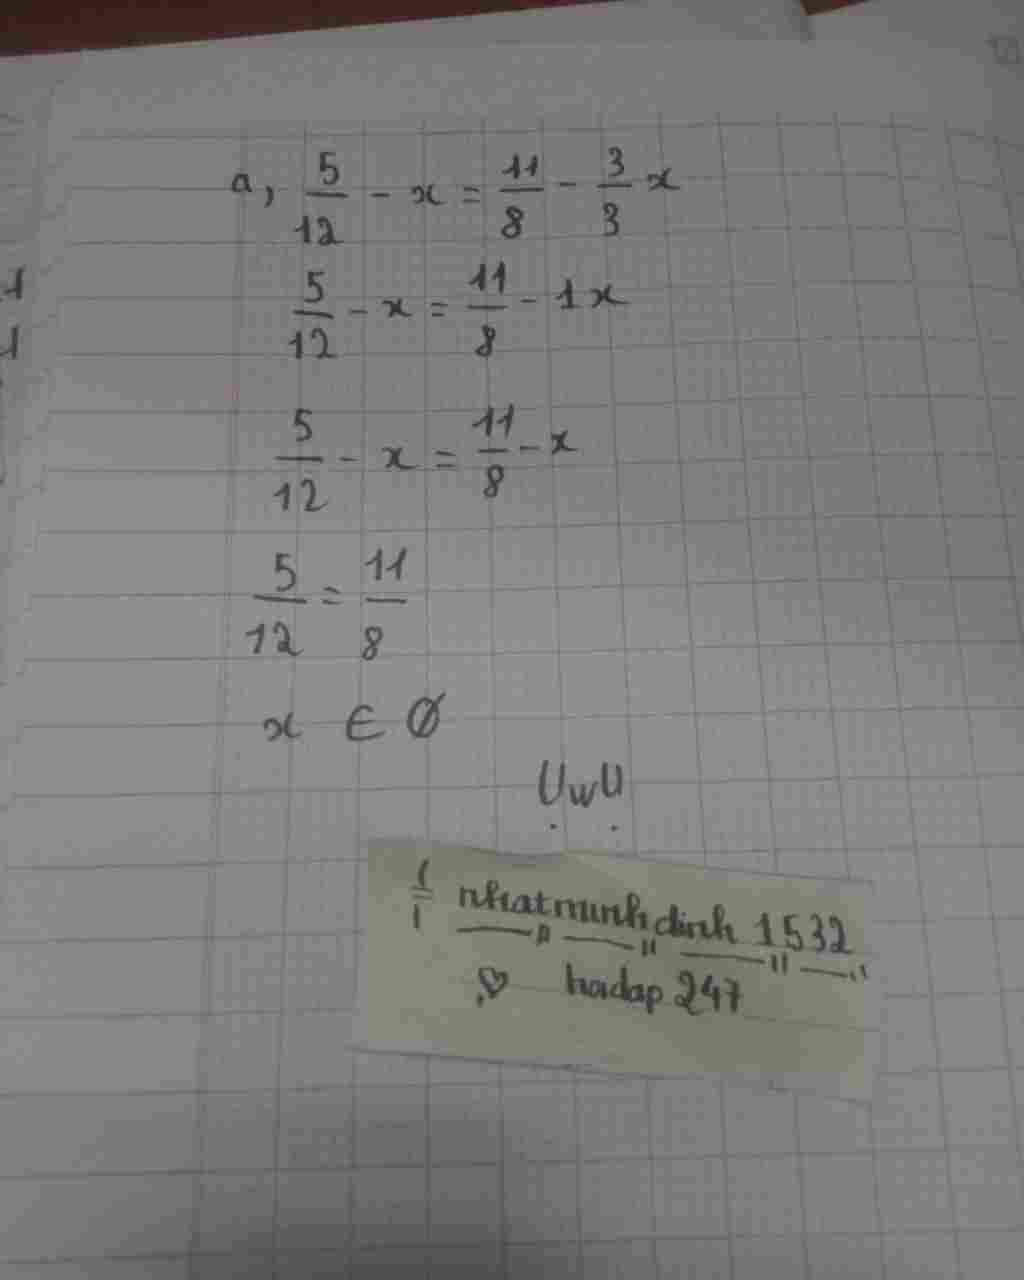 a, 5/12 - x = 11/8 - 3/3 x
5/12 - x = 11/8 - 1x
5/12 - x = 11/8 - x
5/12 = 11/8
x ∈ ∅
UwU
nhatminhdinh 1532
hoidap 247